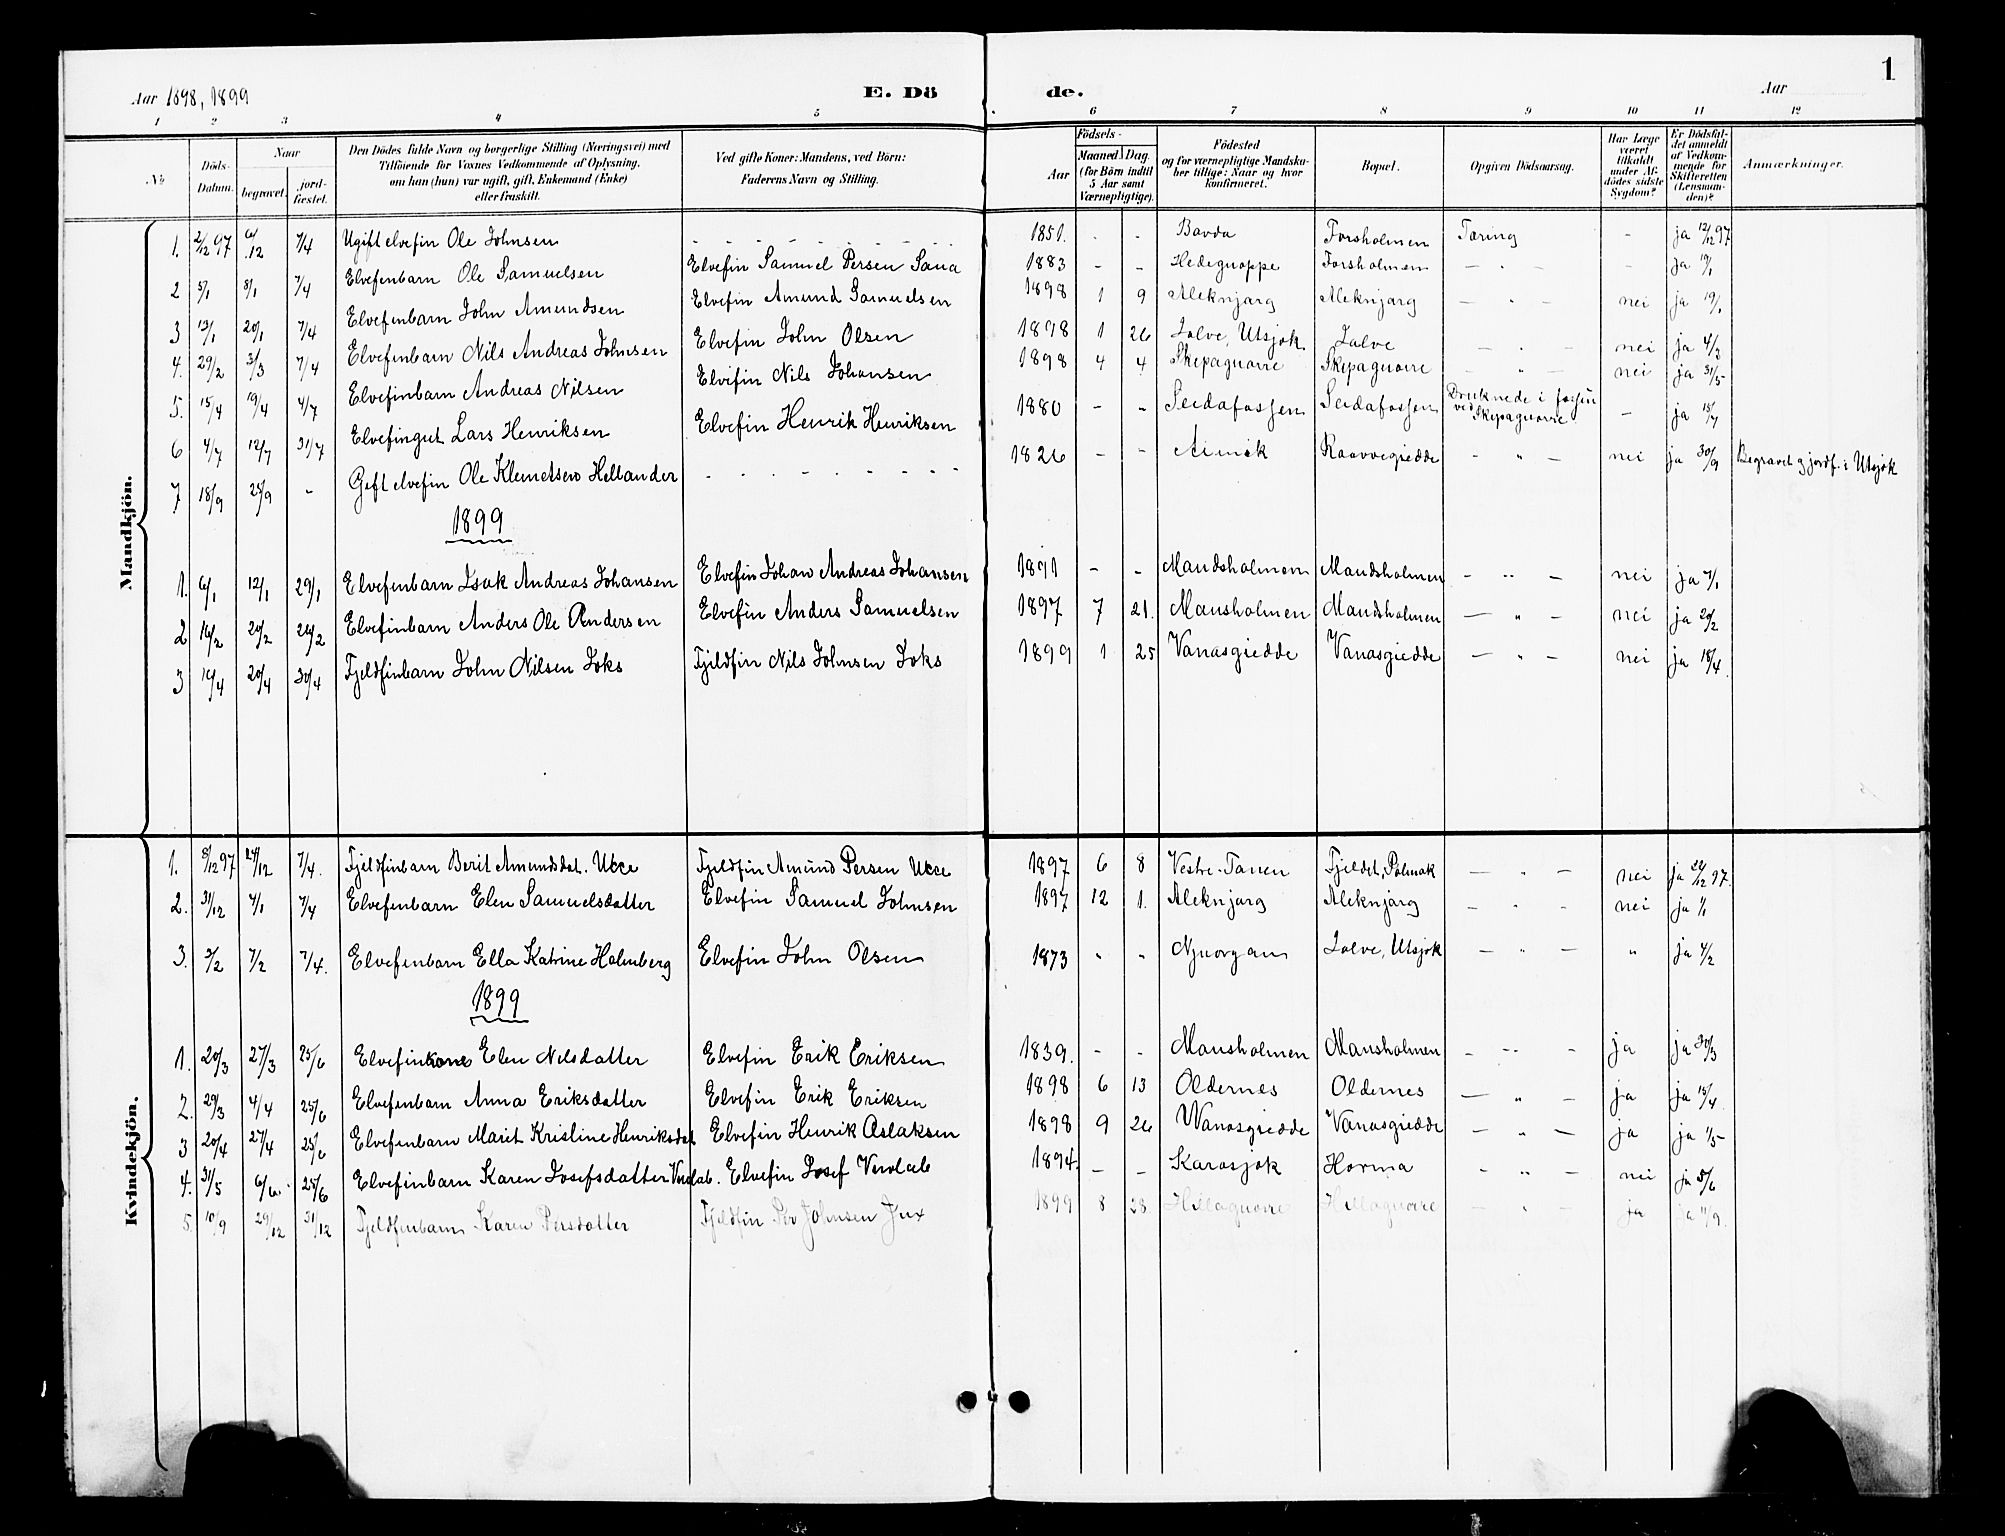 Aar 1898, 1899
E. Dö
de.
Aar
1
1 2 3 4 5
6 7 8 9 10 11 12
No
Döds-Datum.
Naar
begravet.
jordfæstet.
Den Dödes fulde Navn og borgerlige Stilling (Næringsvei) med
Tilföiende for Voxnes Vedkommende af Oplysning,
om han (hun) var ugift, gift, Enkemand (Enke)
eller fraskilt.
Ved gifte Koner: Mandens, ved Börn:
Faderens Navn og Stilling.
Födsels-
Aar
Maaned. Dag.
(for Börn indtil
5 Aar samt
Værnepligtige).
Födested
og for værnepligtige Mandska-
ber tillige: Naar og hvor
konfirmeret.
Bopæl.
Opgiven Dödsaarsag.
Har Læge
været
tilkaldt
under Af-
dödes sidste
Sygdom?
Er Dödsfal-
det anmeldt
af Vedkom-
mende for
Skifteretten
(Lensman-
den)?
Anmærkninger.
Mandkjön.
1. 2/12 97 6/12 7/4 Ugift elvefin Ole Johnsen - - - - - - - 1851. - - Bavda Forsholmen Tæring - ja 12/12 97
2 3/1 8/1 7/4 Elvefenbarn Ole Samuelsen Elvefin Samuel Persen Sana 1883 - - Hedeguoppe Forsholmen - " - - ja 19/1
3 13/1 20/1 7/4 Elvefenbarn John Amundsen Elvefin Amund Samuelsen 1898 1 9 Aleknjarg Aleknjarg - " - nei ja 19/1
4. 29/2 3/3 7/4 Elvefenbarn Nils Andreas Johnsen Elvefin John Olsen 1898 1 26 Jalve, Utsjok Jalve - " - nei ja 4/3
5. 15/4 19/4 4/7 Elvefinbarn Andreas Nilsen Elvifin Nils Johansen 1898 4 4 Skipaguorre Skipaguorre - " - nei ja 31/5
6 4/7 12/7 31/7 Elvefingut Lars Henriksen Elvefin Henrik Henriksen 1880 - - Seidafossen Seidafossen Druknede i fossen
ved Skipaguorre - ja 15/7
7 18/9 25/9 - Gift elvefin Ole Klemetsen Hellander - - - - - - - 1826 - - Aimek Raavvegiedde - " - nei ja 30/9 Begravet og jordf. i Utsjok
1899
1. 6/1 12/1 29/1 Elvefenbarn Isak Andreas Johansen Elvefin Johan Andreas Johansen 1891 - - Mandsholmen Mandsholmen - " - nei ja 7/1
2 16/2 20/2 26/2 Elvefinbarn Anders Ole Andersen Elvefin Anders Samuelsen 1897 7 21. Mansholmen Mandsholmen - " - nei ja 20/2
3 16/4 20/4 30/4 Fjeldfinbarn John Nilsen Joks Fjeldfin Nils Johnsen Joks 1899 1 25 Vanasgiedde Vanasgiedde - " - nei ja 18/4
Kvindekjön.
1. 8/12 97 24/12 7/4. Fjeldfinbarn Berit Amundsdat. Ucce Fjeldfin Amund Persen Ucce 1897 6 8 Vestre-Tanen Fjeldet, Polmak - " - nei ja 24/12 97.
2. 31/12 4/1 7/4 Elvefenbarn Elen Samuelsdatter Elvefin Samuel Johnsen 1897 12 1. Aleknjarg Aleknjarg - " - nei ja 4/1
3. 3/2 7/2 7/4. Elvefenbarn Ella Katrine Holmberg Elvefin John Olsen 1873 " " Njuorgam Jalve, Utsjok - " - " ja 4/2
1899
1. 20/3 27/3 25/6 Elvefinkone Elen Nilsdatter Elvefin Erik Eriksen 1839. - - Mansholmen Mansholmen - " - ja ja 30/3
2. 29/3 4/4 25/6 Elvefenbarn Anna Eriksdatter Elvefin Erik Eriksen 1898 6 13 Oldernes Oldernes - " - ja ja 15/4
3 20/4 27/4 25/6 Elvefenbarn Marit Kristine Henriksdat Elvefin Henrik Aslaksen 1898 9 26 Wanasgiedde Vanasgiedde - " - ja ja 1/5
4. 31/5 6/6 25/6 Elvefinbarn Karen Josefsdatter Vuolab. Elvefin Josef Vuolab 1894. - - Karasjok Horma - " - nei ja 5/6
5. 10/9 29/12 31/12 Fjeldfenbarn Karen Persdatter Fjeldfin Per Johnsen Jux 1899 8 28. Hillaguorre Hillaguorre - " - ja ja 11/9.